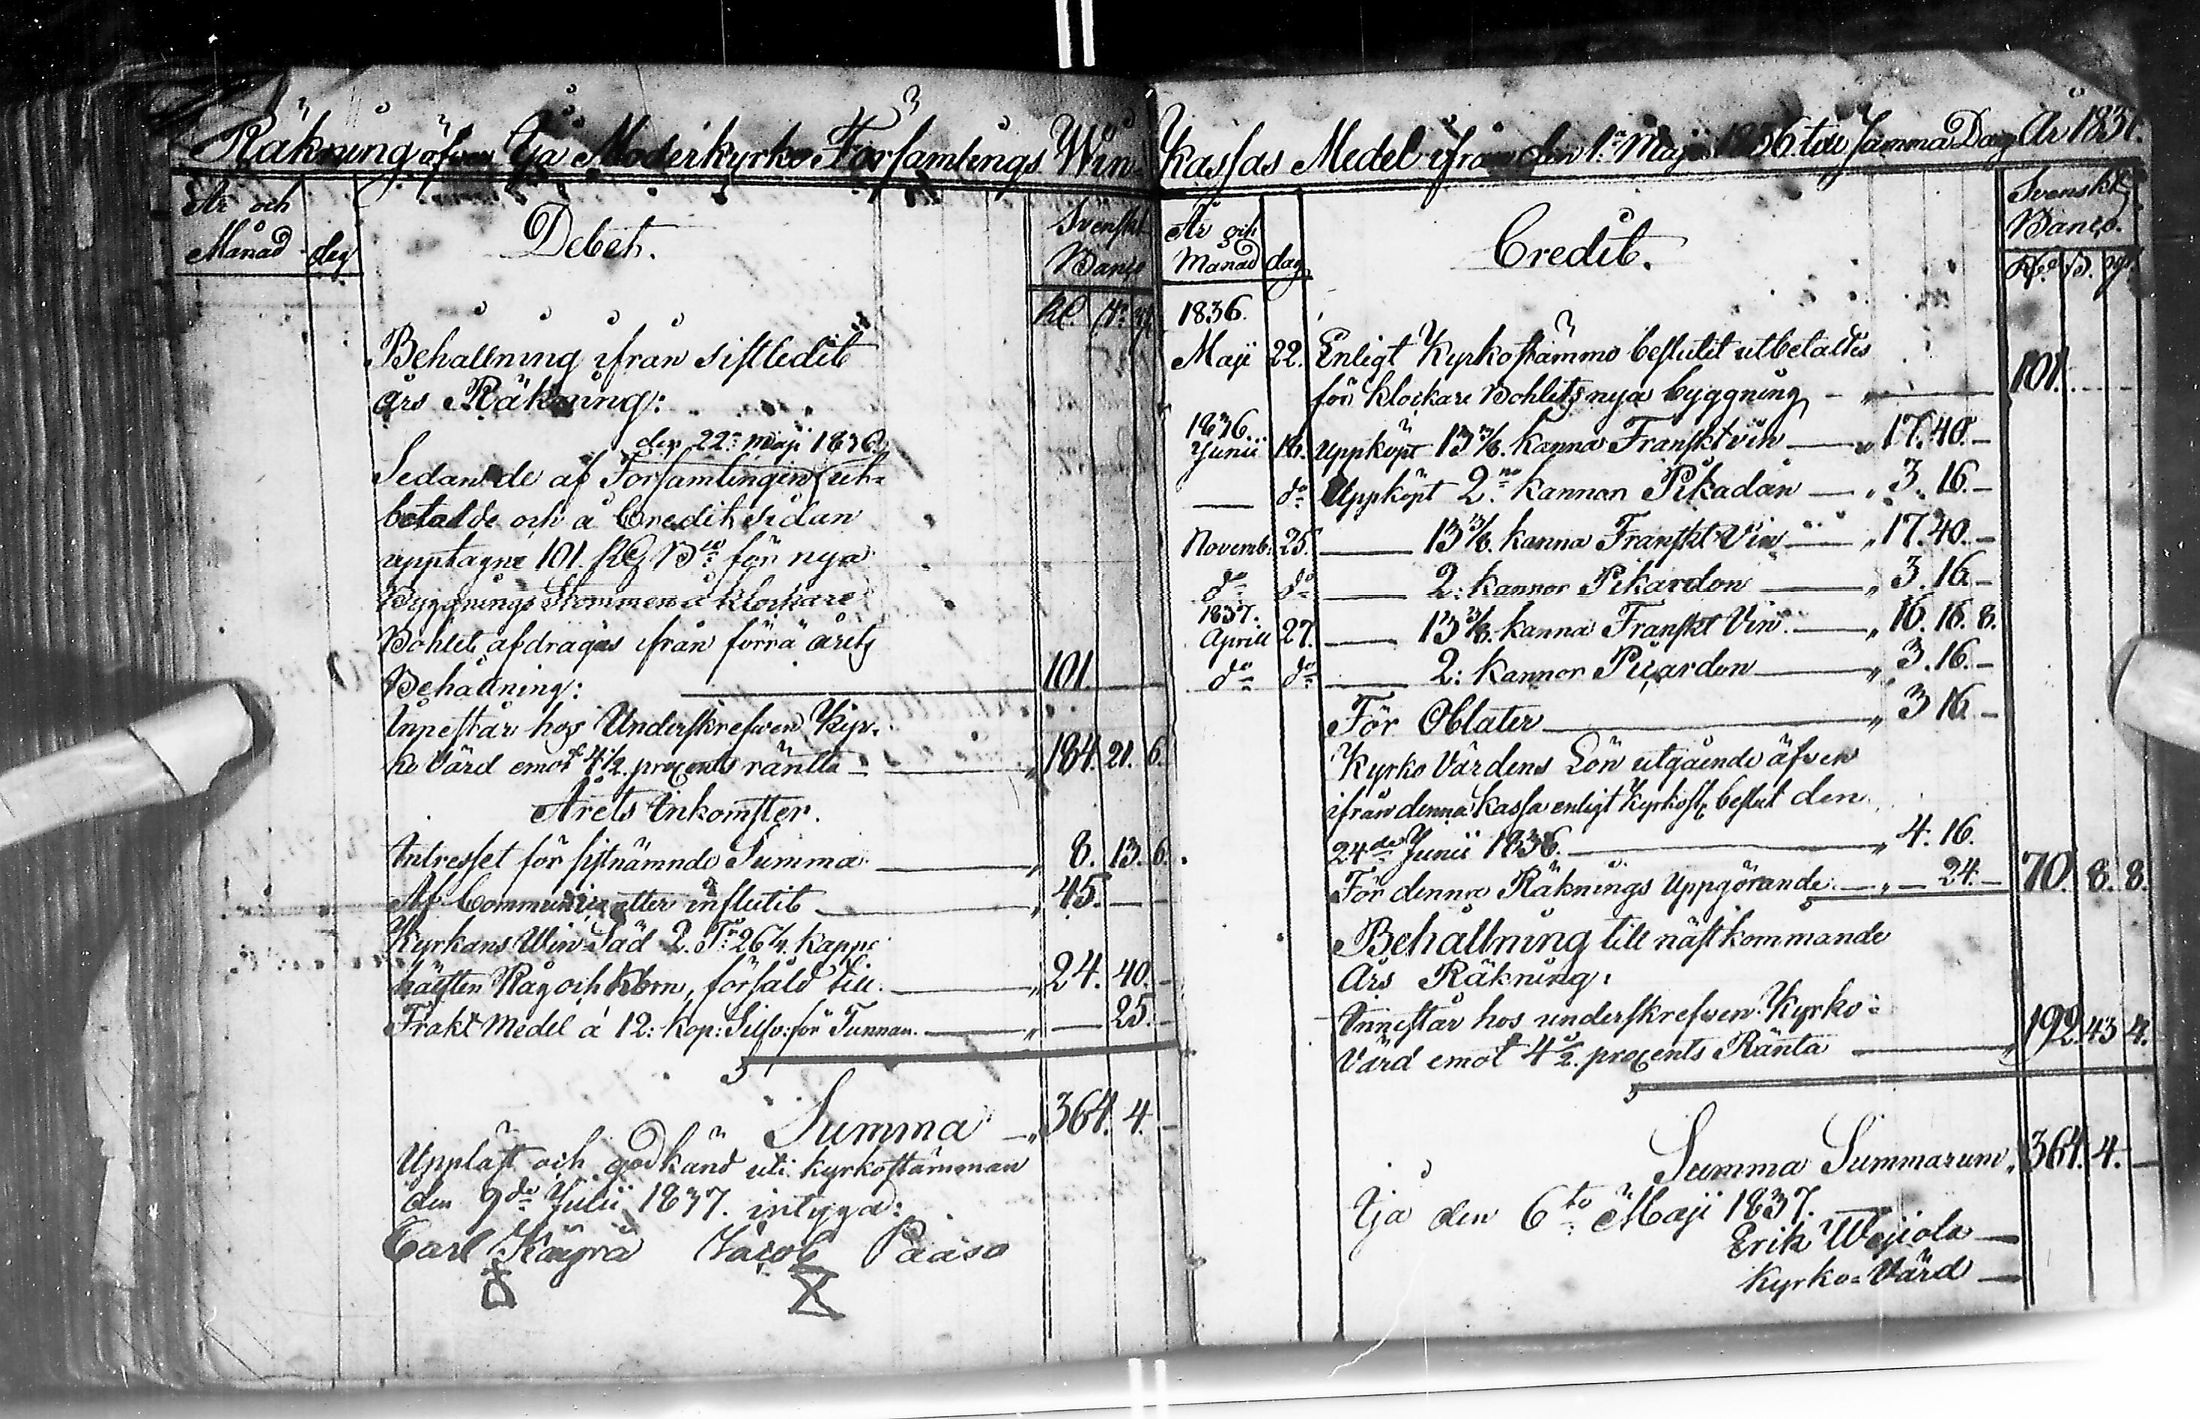 Räkning öfver Ijå Moderkyrko Församlings Win-
År och
Månad
dag
Debet.
Svenskt
Banco
Rd. s. r.
Behållning ifrån sistledit
års Räkning:
den 22: Maji 1836.
Sedan de af Församlingen ut-
betalde och å Credit sidan
upptagne 101. Rd Bco för nya
Byggnings Stommen å Klockare
Bohlet, afdragas ifrån förra årets
Behållning: 101.
Innestår hos Underskrefwen Kyr-
ko Värd emot 4 1/2. procents ränta „ 184. 21. 6.
Årets Inkomster.
Intresset för sistnämnde Summa „ 8. 13. 6.
Af Communicanter influtit „ 45. — —
Kyrkans Win Säd 2. Tr 26 1/4. kappe
hälften Råg och Korn, försåld till „ 24. 40. —
Frakt Medel á 12: Kop: Silfv: för Tunnan „ — 25. —
Summa „ 364. 4. —
Uppläst och godkänd uti kyrkostämman
den 9de Julii 1837. intyga:
Carl Käyrä Jacob Paaso
Kassas Medel ifrån den 1:a Maji 1836. till samma Dag År 1837.
År och
Månad
dag
Credit.
Svenskt
Banco.
1836.
Maji 22. Enligt Kyrkostämmo beslutet utbetaltes
för Klockare Bohlets nya byggning — „ 101. — —
1836.
Junii 16. Uppköpt 13 3/8. kanna Franskt vin — „ 17. 40. —
— do Uppköpt 2:ne kannor Pikadan — „ 3. 16. —
Novemb. 25. — 13 3/8. kanna Franskt Vin — „ 17. 40. —
do do — 2: kannor Pikardon — „ 3. 16. —
1837.
Aprill 27. — 13 3/8. kanna Franskt Vin — „ 16. 16. 8.
do do — 2: kannor Picardon — „ 3. 16. —
För Oblater — „ 3 16. —
Kyrko Värdens Lön utgående äfven
ifrån denna Kassa enligt Kyrkost. beslut den
24de Junii 1836. — „ 4. 16.
För denna Räknings Uppgörande — „ — 24. — 70. 8. 8.
Behållning till nästkommande
Års Räkning:
Innestår hos underskrefwen Kyrko-
Värd emot 4 1/2. procents Ränta — „ 192. 43 4.
Summa Summarum „ 364. 4. —
Ijå den 6to Maji 1837.
Erik Wejjola —
Kyrko-Värd —